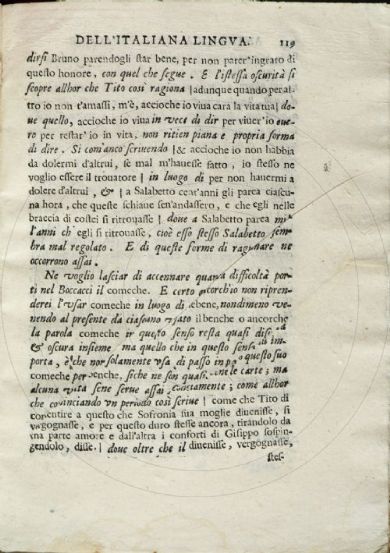 DELL'ITALIANA LINGVA. 119
dirsi Bruno parendogli star bene, per non parer'ingrato di
questo honore, con quel che segue. E l'istessa oscurità si
scopre allhor che Tito così ragiona | adunque quando per al-
tro io non t'amassi, m'è, accioche io viva cara la vita tua | do-
ue quello, accioche io viua in vece di dir per viuer'io ouero
per restar' io in vita, non ritien piana e propria forma
di dire. Sì com'anco scriuendo | & accioche io non habbia
da dolermi d'altrui, se mal m'hauesse fatto, io stesso ne
voglio essere il trouatore | in luogo di per non hauermi a
dolere d'altrui, & | a Salabetto cent'anni gli parea ciascu-
na hora, che queste schiaue sen'andassero, e che egli nelle
braccia di costei si ritrouasse | doue a Salabetto parea mil
l'anni ch' egli si ritrouasse, cioè esso stesso Salabetto, sem
bra mal regolato. E di queste forme di ragionare ne
occorrono assai.
Ne voglio lasciar di accennare quanta difficoltà por-
ti nel Boccacci il comeche. E certo percioch'io non ripren-
derei l'vsar comeche in luogo di benche, nondimeno ve-
nendo al presente da ciascuno vsato il benche o ancorche
la parola comeche in questo senso resta quasi
& oscura insieme, ma quello che in questo senso
porta, è che non solamente vsa di passo in questo suo
comeche per benche, siche ne son quasi le carte; ma
alcuna volta sene serue assai; come allhor
che cominciando vn periodo così scriue | come che Tito di
consentire a questo che Sofronia sua moglie diuenisse, si
vergognasse, e per questo duro stesse ancora, tirandolo da
vna parte amore e dall'altra i conforti di Gisippo sospin-
gendolo, disse. | doue oltre che il diuenisse, vergognasse,
stes-